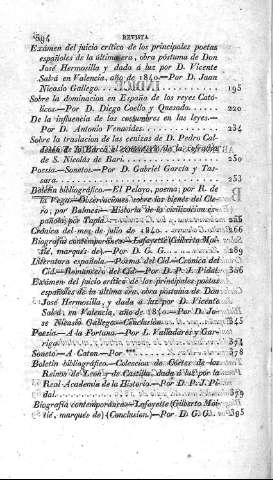 394 REVISTA
Exámen del juicio crítico de los principales poetas
españoles de la última era, obra póstuma de Don
José Hermosilla y dada á luz por D. Vicente
Salvá en Valencia, año de 1840.—Por D. Juan
Nicasio Gallego. 195
Sobre la dominacion en España de los reyes Cató-
licos.—Por D. Diego Coello y Quesada. 220
De la influencia de las costumbres en las leyes.—
Por D. Antonio Venavides. 234
Sobre la traslacion de las cenizas de D. Pedro Cal-
deron de la Barca al cementerio de la cofradía
de S. Nicolás de Bari. 250
Poesía.—Sonetos.—Por D. Gabriel García y Tas-
sara. 253
Boletin bibliográfico.—El Pelayo, poema; por R. de
la Vega.—Observaciones sobre los bienes del Cle-
ro, por Balmes.—Historia de la civilizacion es-
pañola; por Tapia.
Crónica del mes de julio de 1840. 266
Biografía contemporánea.—Lafayette (Gilberto Mot-
tié, marques de).—Por D. G. G. 289
Literatura española.—Poema del Cid.—Crónica del
Cid.—Romancero del Cid.—Por D. P. J. Pidal. 306
Exámen del juicio crítico de los principales poetas
españoles de la última era, obra póstuma de Don
José Hermosilla, y dada á luz por D. Vicente
Salvá, en Valencia, año de 1840.—Por D. Jo-
se Nicasio Gallego.—Conclusion.) 345
Poesía.—A la Fortuna.—Por J. Valladares y Gar-
riga. 374
Soneto.—A Caton.—Por *** 378
Boletin bibliográfico.—Coleccion de Córtes de los
Reinos de Leon y de Castilla, dada á luz por la
Real Academia de la Historia.—Por D. P. J. Pi-
dal. 379
Biografía contemporánea.—Lafayette (Gilberto Mot-
tié, marques de) (Conclusion.)—Por D. G. G. 395